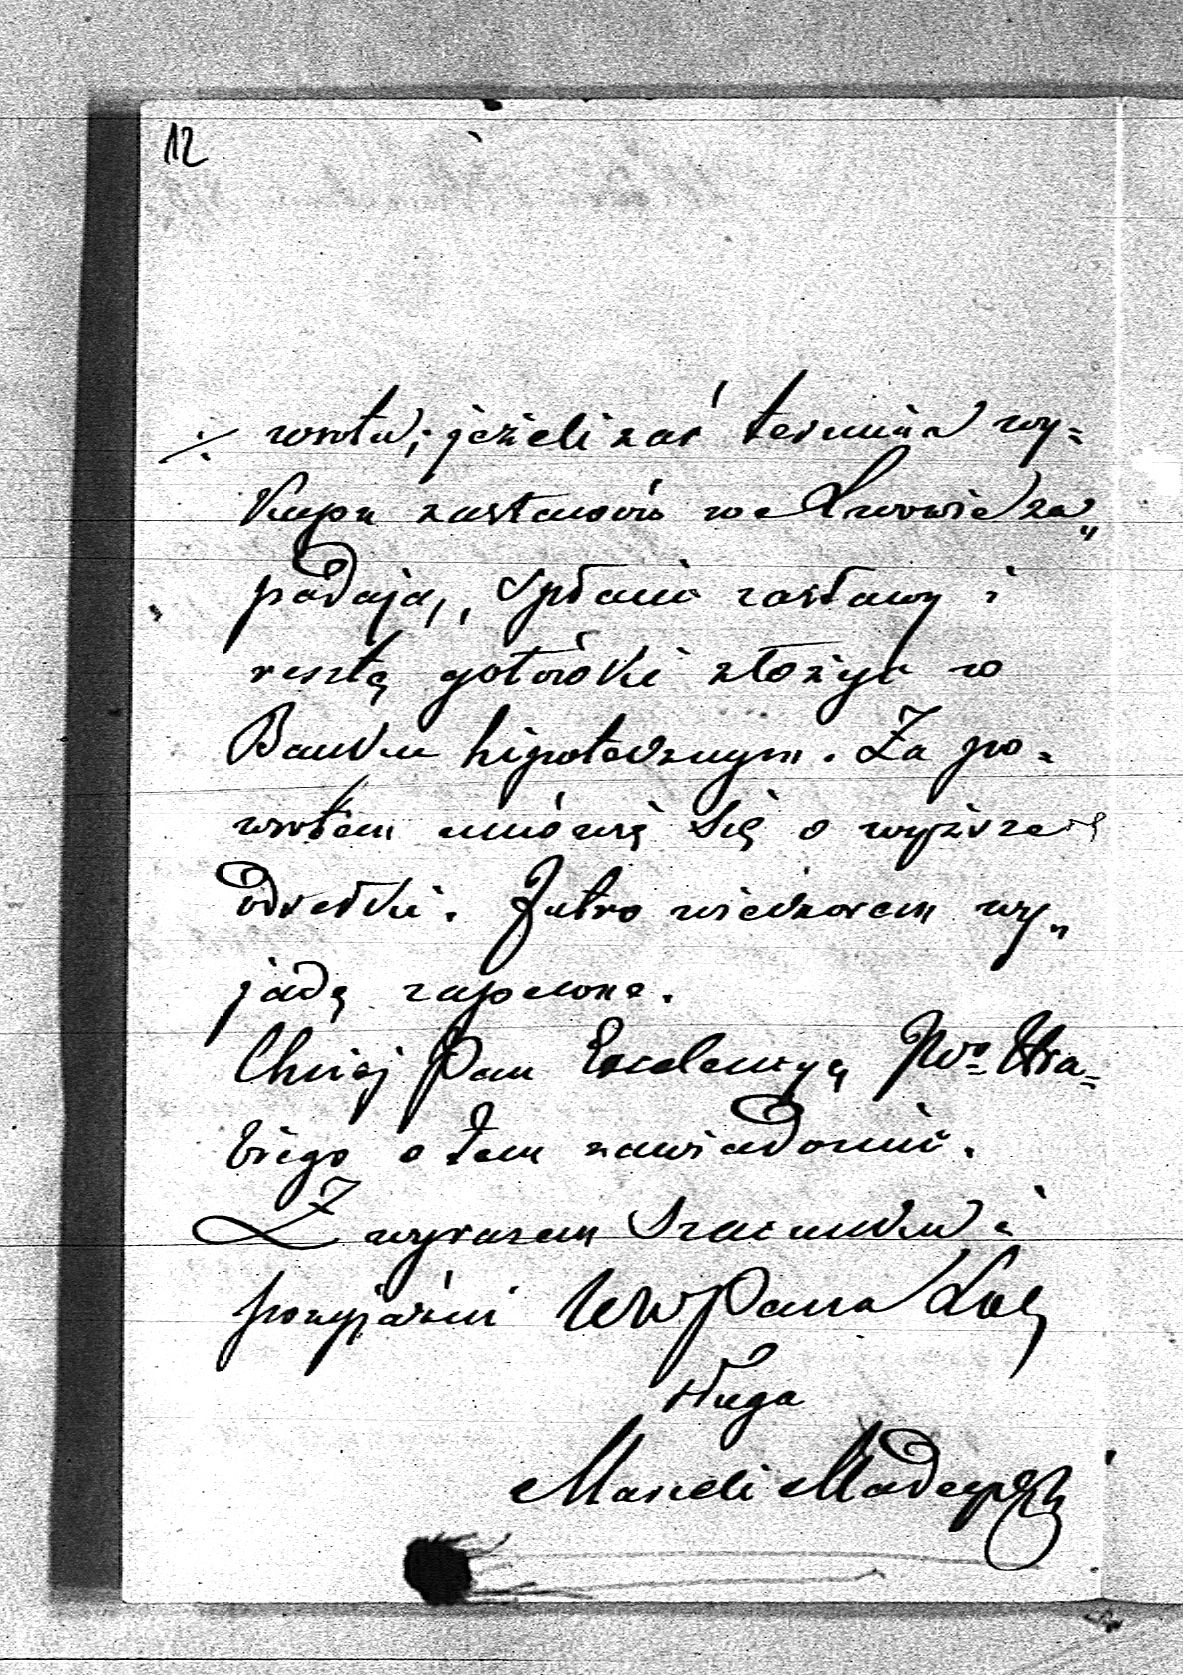 12
wrotu; jeżeli zaś termina wy=
kupu zastawów we Lwowie za„
padają, spłacić zastawy i
resztę gotówki złożyć w
Banku hipotecznym. Za po=
wrotem umówię się o wyższe
odsetki. Jutro wieczorem wy„
jadę zapewne.
Chciej Pan Excelencyą JWo Hra=
biego o tem zawiadomić.
Z wyrazem szacunku i
przyjaźni WWPana
sługa
Marceli Madeyski